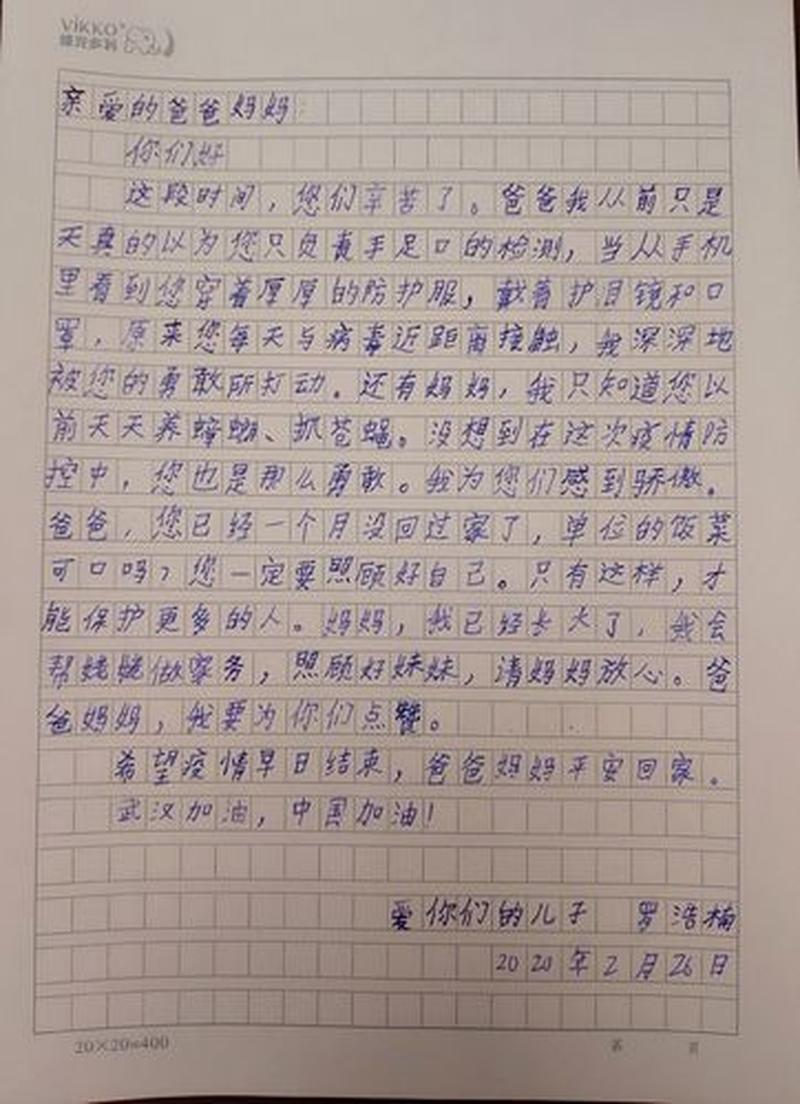 ViKKO
亲爱的爸爸妈妈:
你们好
这段时间，您们辛苦了。爸爸我从前只是
天真的以为您只负责手足口的检测，当从手机
里看到您穿着厚厚的防护服，戴着护目镜和口
罩，原来您每天与病毒近距离接触，我深深地
被您的勇敢所打动。还有妈妈，我只知道您以
前天天养蟑螂、抓苍蝇。没想到在这次疫情防
控中，您也是那么勇敢。我为您们感到骄傲。
爸爸，您已经一个月没回过家了，单位的饭菜
可口吗？您一定要照顾好自己。只有这样，才
能保护更多的人。妈妈，我已经长大了，我会
帮姥姥做家务，照顾好妹妹，请妈妈放心。爸
爸妈妈，我要为你们点赞。
希望疫情早日结束，爸爸妈妈平安回家。
武汉加油，中国加油！
爱你们的儿子 罗浩楠
2020年2月26日
20×20=400
第 页